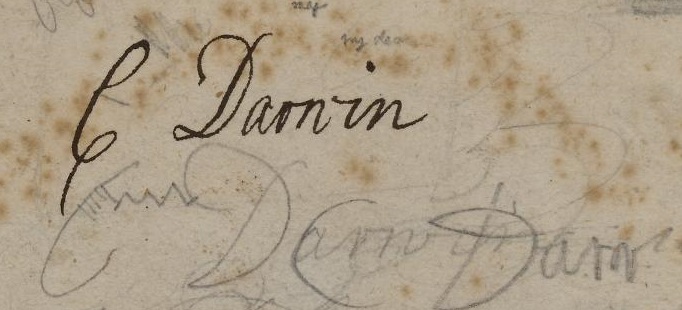 my dear
C Darwin
Darwin Darw